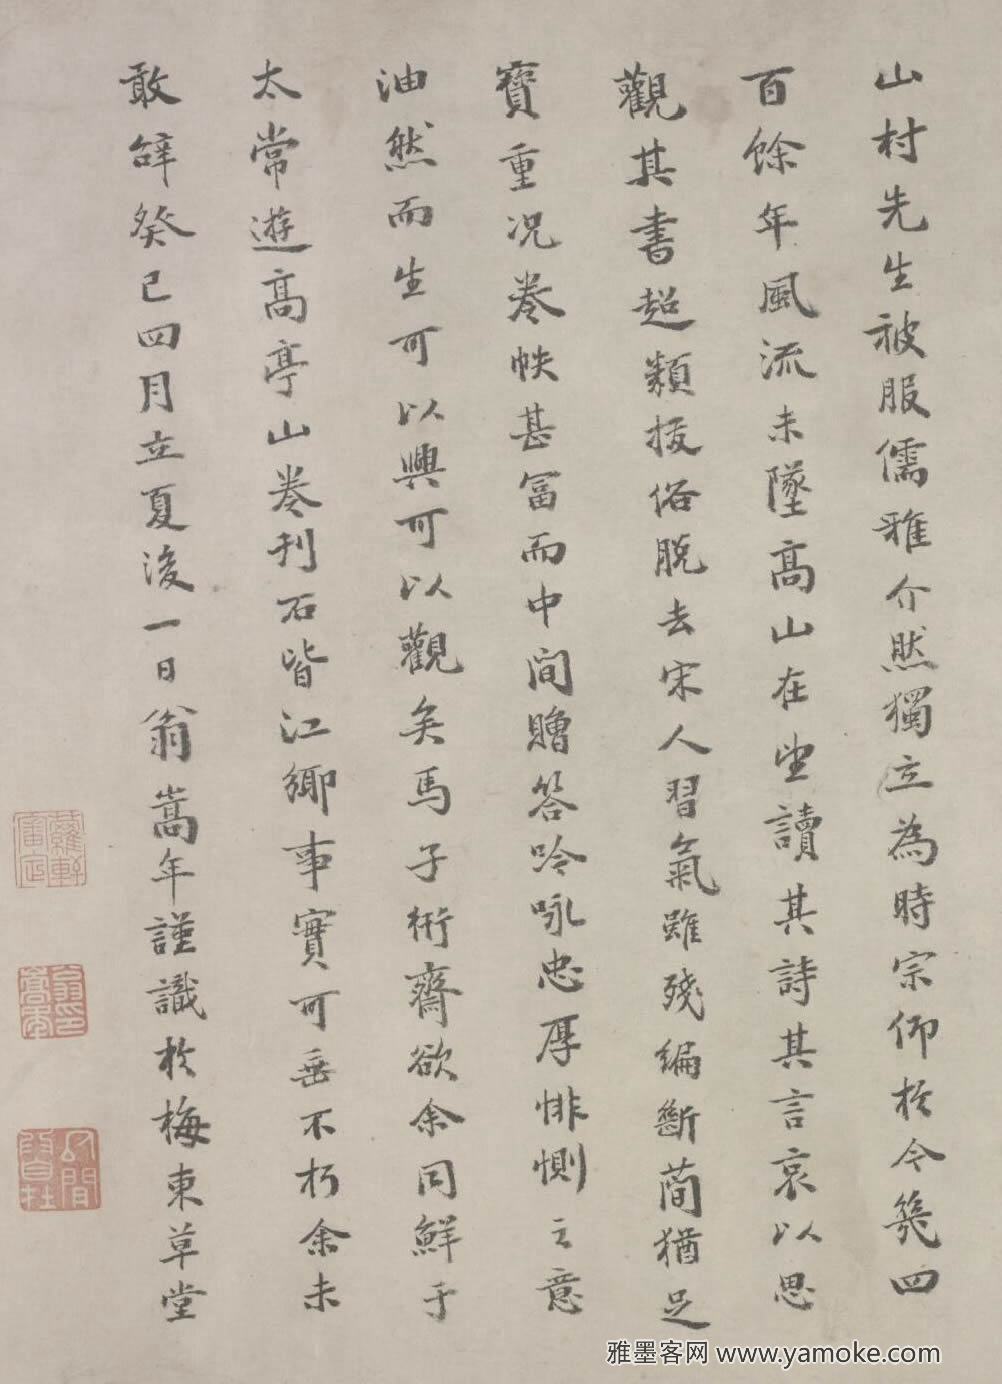 山村先生被服儒雅介然獨立為時宗仰於今幾四
百餘年風流未墜高山在望讀其詩其言哀以思
觀其書超類拔俗脫去宋人習氣雖殘編斷簡猶足
寶重况卷帙甚富而中間贈答吟咏忠厚悱惻之意
油然而生可以興可以觀矣馬子衎齋欲余同鮮于
太常遊高亭山卷刊石皆江鄉事實可垂不朽余未
敢辭癸巳四月立夏後一日翁嵩年謹識於梅東草堂
蘿軒
翁印嵩年
雅墨客网 www.yamoke.com